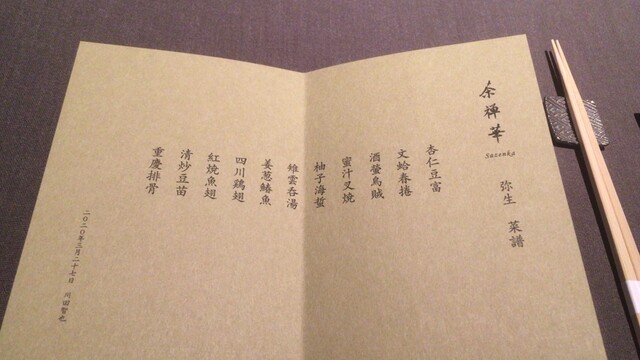 茶禅華
Sazenka
弥生 菜譜
杏仁豆富
文蛤春捲
酒螢烏賊
蜜汁叉焼
柚子海蜇
雉雲呑湯
姜葱鰆魚
四川鶏翅
紅焼魚翅
清炒豆苗
重慶排骨
二〇二〇年三月二十七日 川田智也